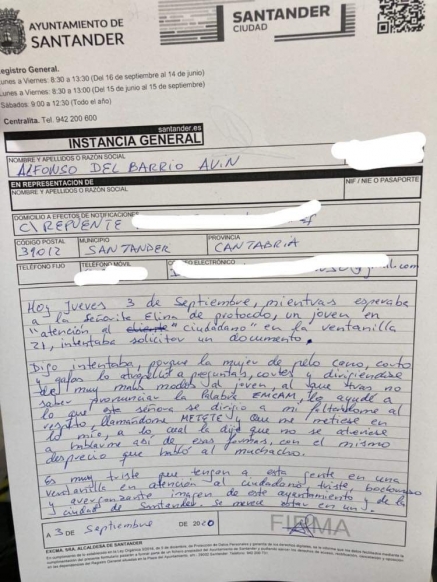 AYUNTAMIENTO DE
SANTANDER
SANTANDER
CIUDAD
Registro General.
Lunes a Viernes: 8:30 a 13:30 (Del 16 de septiembre al 14 de junio)
Lunes a Viernes: 8:30 a 13:00 (Del 15 de junio al 15 de septiembre)
Sábados: 9:00 a 12:30 (Todo el año)
Centralita. Tel. 942 200 600
santander.es
INSTANCIA GENERAL
NOMBRE Y APELLIDOS O RAZÓN SOCIAL
ALFONSO DEL BARRIO AVIN
EN REPRESENTACION DE
NOMBRE Y APELLIDOS O RAZÓN SOCIAL
NIF / NIE O PASAPORTE
DOMICILIO A EFECTOS DE NOTIFICACIONES
C\ REPUENTE
CÓDIGO POSTAL MUNICIPIO PROVINCIA
39012 SANTANDER CANTABRIA
TELÉFONO FIJO TELÉFONO MÓVIL CORREO ELECTRÓNICO
@gmail.com
Hoy Jueves 3 de Septiembre, mientras esperaba
a la Señorita Elina de protocolo, un joven en
"atención al cliente" ciudadano" en la ventanilla
21, intentaba solicitar un documento.
Digo intentaba, porque la mujer de pelo cano, corto
y gafas lo atropelló a preguntas, cortes y dirigiendose
de muy malos modos al joven, al que tras no
saber pronunciar la palabra EMCAM, le ayudé a
lo que esta señora se dirigió a mi faltandome al
respeto, llamándome METETE y que me metiese en
lo mío, a lo cual la dije que no se atreviese
a hablarme así de esas formas, con el mismo
desprecio que habló al muchacho.
Es muy triste que tengan a esta gente en una
ventanilla en atención al ciudadano, triste, bochornoso
y avergonzante imagen de este ayuntamiento y de la
ciudad de Santander. Se merece estar en un
A 3 de Septiembre DE 2020
FIRMA
EXCMA. SRA. ALCALDESA DE SANTANDER